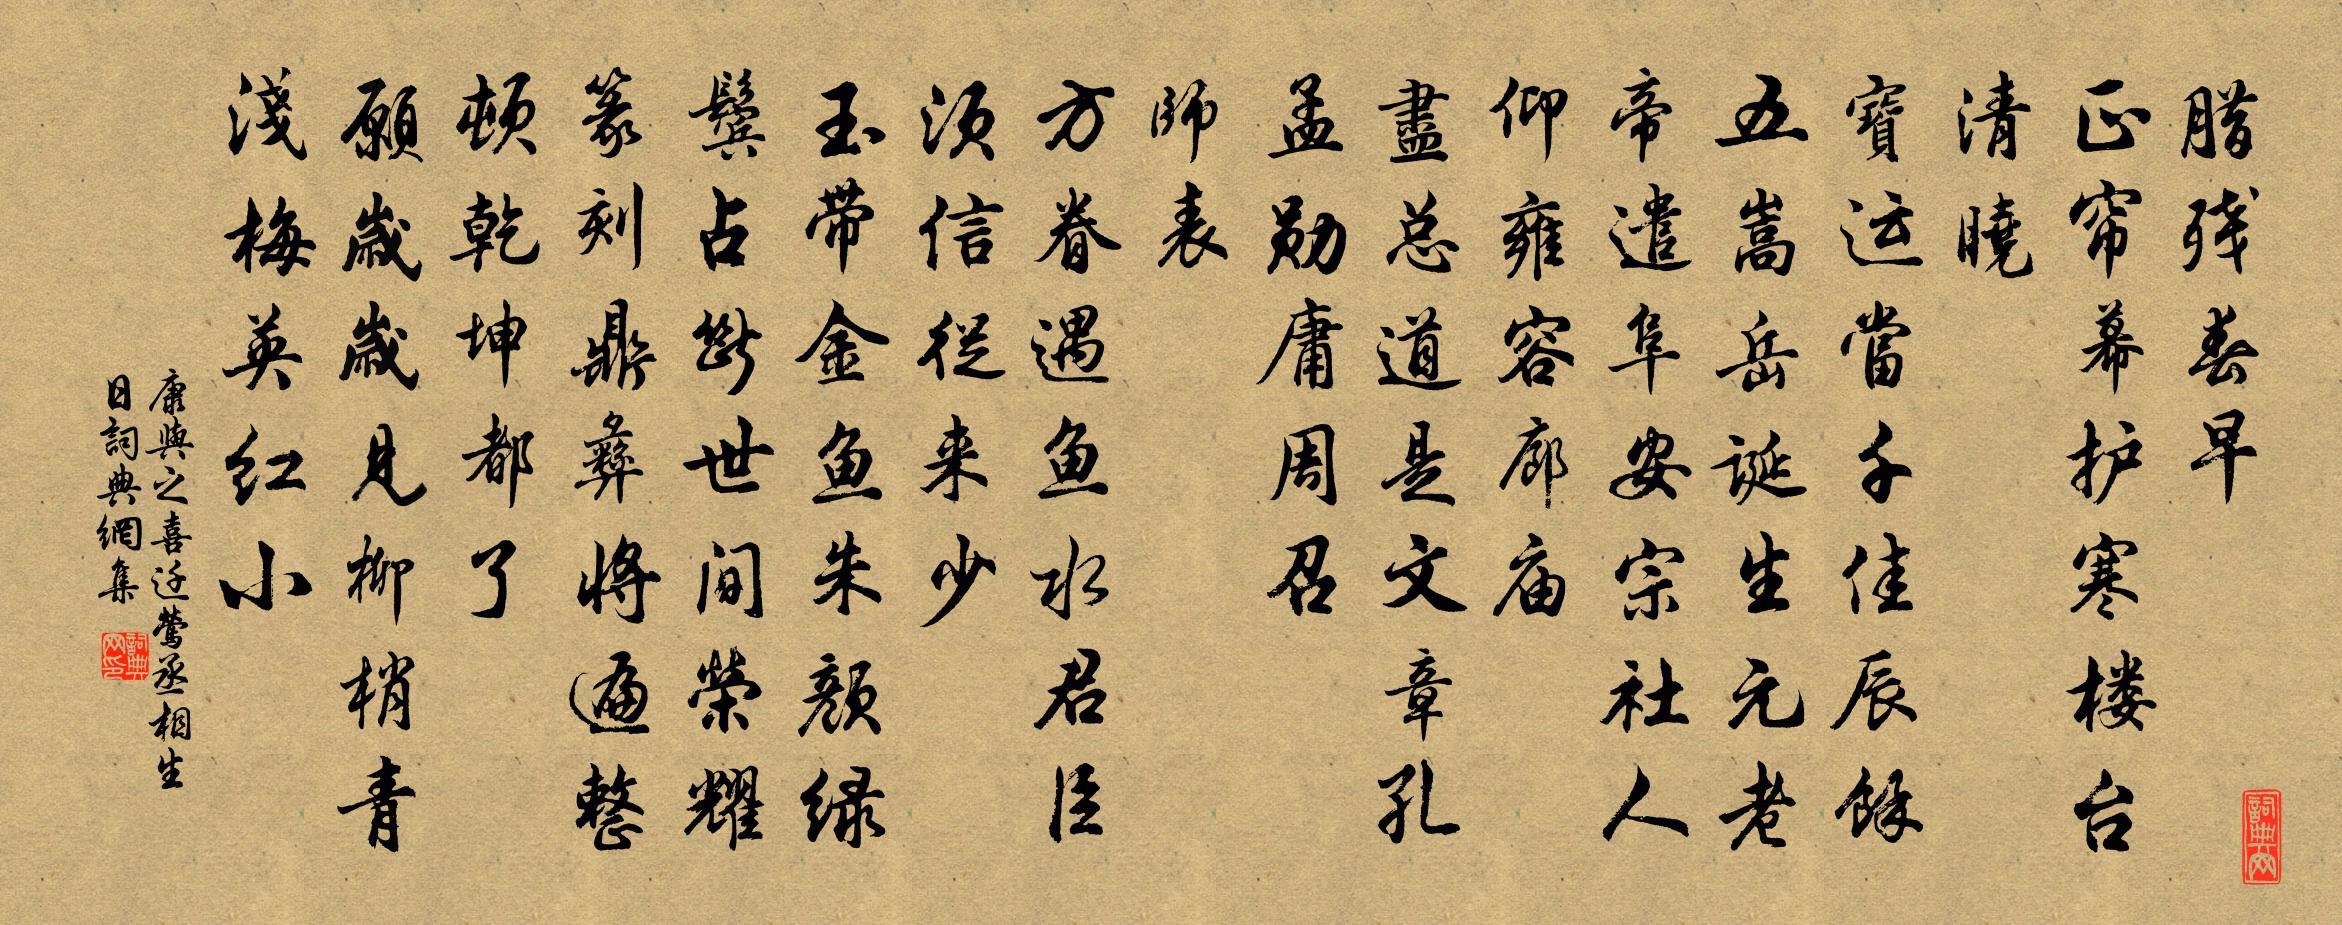 腊残春早
正帘幕护寒楼台
清曉
寶运當千佳辰餘
五嵩岳诞生元老
帝遣阜安宗社人
仰雍容廊庙
盡总道是文章孔
孟勋庸周召
師表
方眷遇鱼水君臣
须信從来少
玉带金鱼朱颜绿
鬓占断世间榮耀
篆刻鼎彝將遍整
顿乾坤都了
願歲歲见柳梢青
淺梅英红小
康與之喜迁鶯丞相生
日詞典網集
詞典网
詞典网印